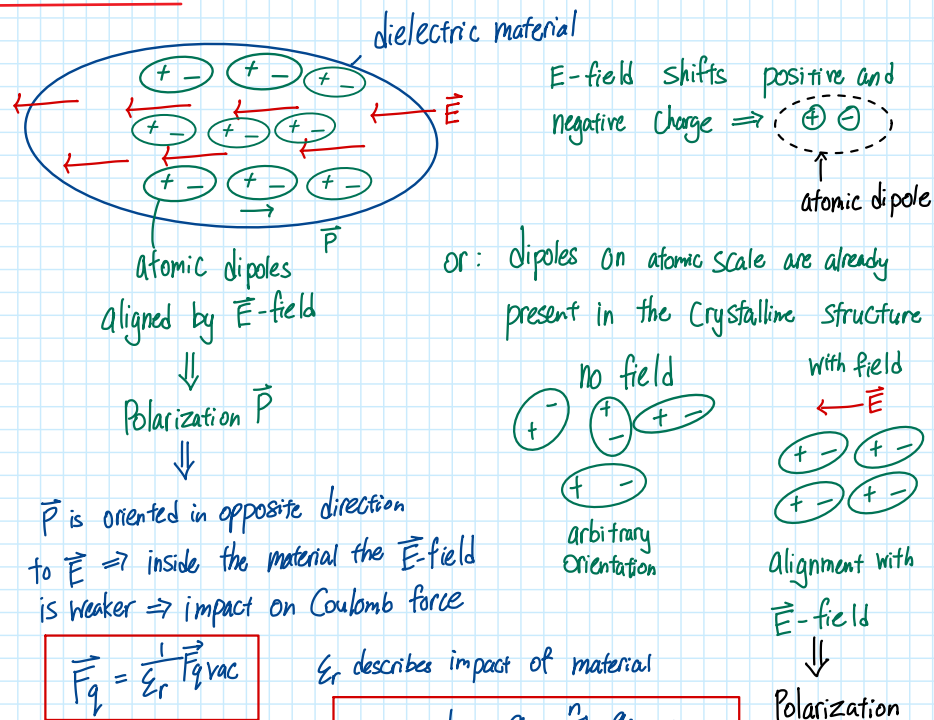 dielectric material
+ - + - + -
+ - + - + -
+ - + - + -
E⃗
P⃗
atomic dipoles
aligned by E⃗-field
⇓
Polarization P⃗
⇓
P⃗ is oriented in opposite direction
to E⃗ ⇒ inside the material the E⃗-field
is weaker ⇒ impact on Coulomb force
F⃗q = 1/εr F⃗q vac
εr describes impact of material
E-field shifts positive and
negative charge ⇒ + -
atomic dipole
or: dipoles on atomic scale are already
present in the Crystalline structure
no field
- + + - + -
+ -
arbitrary
Orientation
with field
E⃗
+ - + -
+ - + -
alignment with
E⃗-field
⇓
Polarization